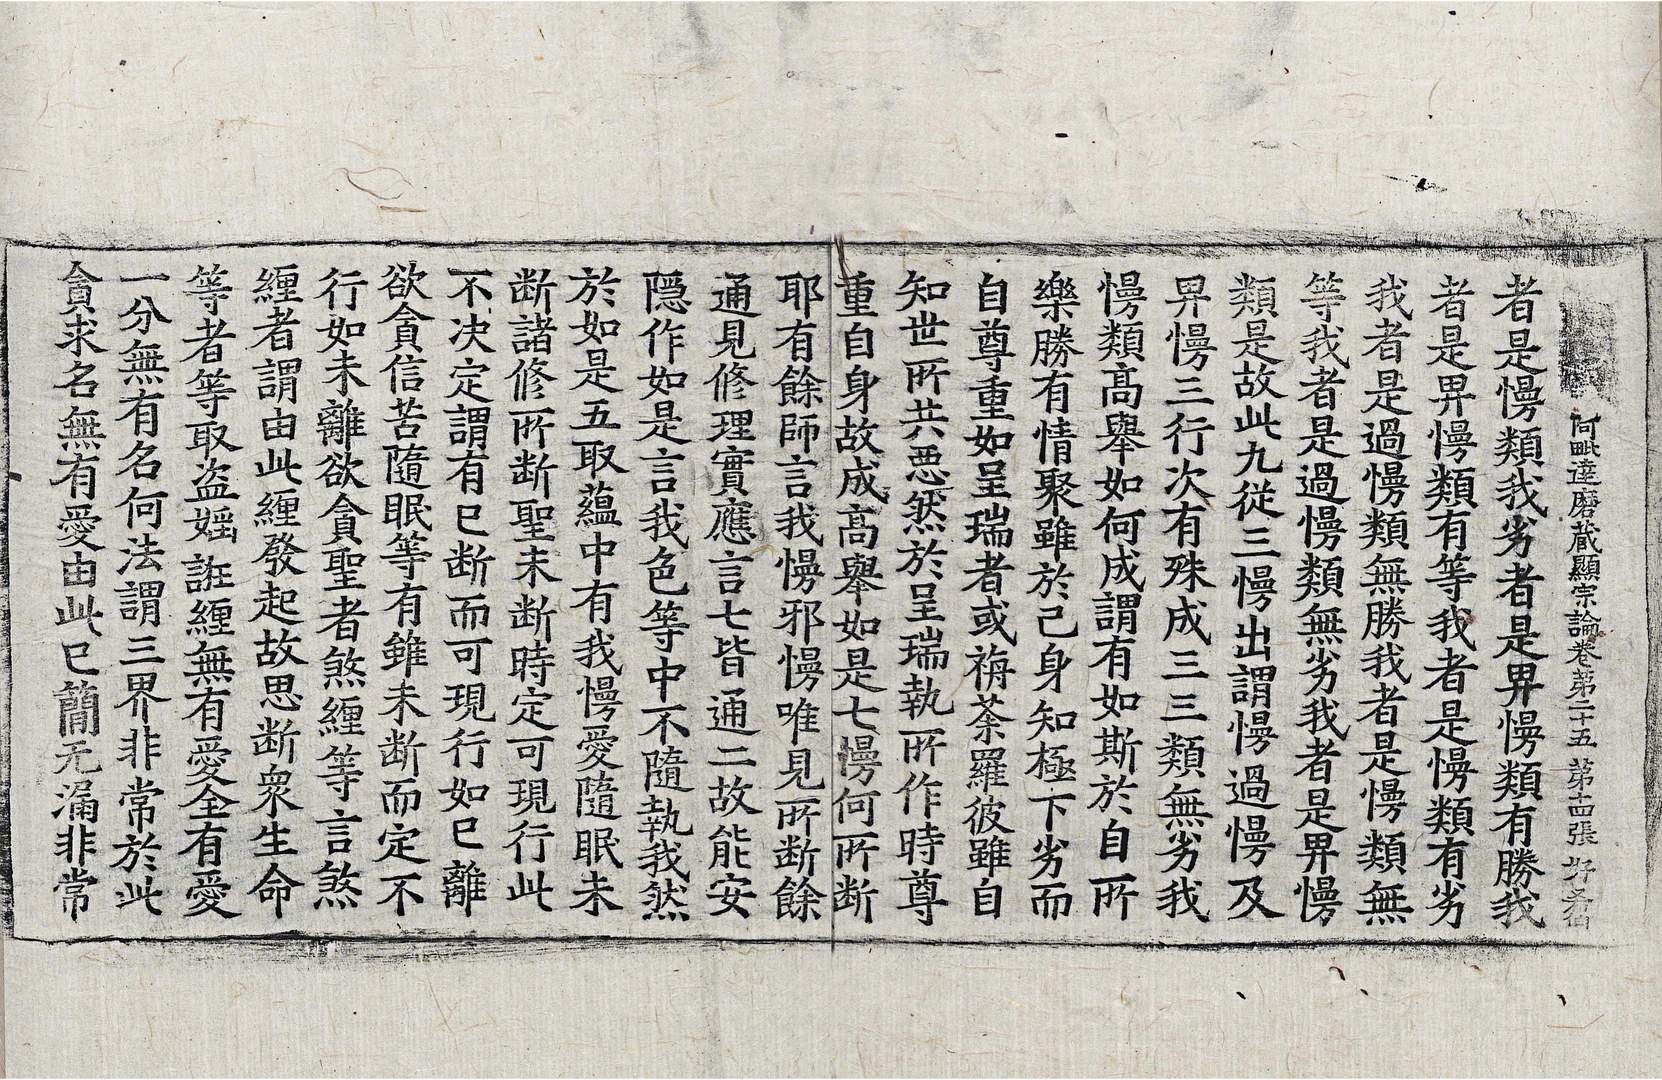 阿毗達磨藏顯宗論卷第二十五 第十四張 好
者是慢類我劣者是畀慢類有勝我
者是畀慢類有等我者是慢類有劣
我者是過慢類無勝我者是慢類無
等我者是過慢類無劣我者是畀慢
類是故此九從三慢出謂慢過慢及
畀慢三行次有殊成三三類無劣我
慢類高舉如何成謂有如斯於自所
樂勝有情聚雖於己身知極下劣而
自尊重如呈瑞者或旃荼羅彼雖自
知世所共惡然於呈瑞執所作時尊
重自身故成高舉如是七慢何所断
耶有餘師言我慢邪慢唯見所断餘
通見修理實應言七皆通二故能安
隱作如是言我色等中不隨執我然
於如是五取蘊中有我慢愛隨眠未
断諸修所断聖未断時定可現行此
不決定謂有已断而可現行如已離
欲貪信苦隨眠等有雖未断而定不
行如未離欲貪聖者煞纏等言煞
纏者謂由此纏發起故思断衆生命
等者等取盗婬誑纏無有愛全有愛
一分無有名何法謂三界非常於此
貪求名無有愛由此已簡无漏非常